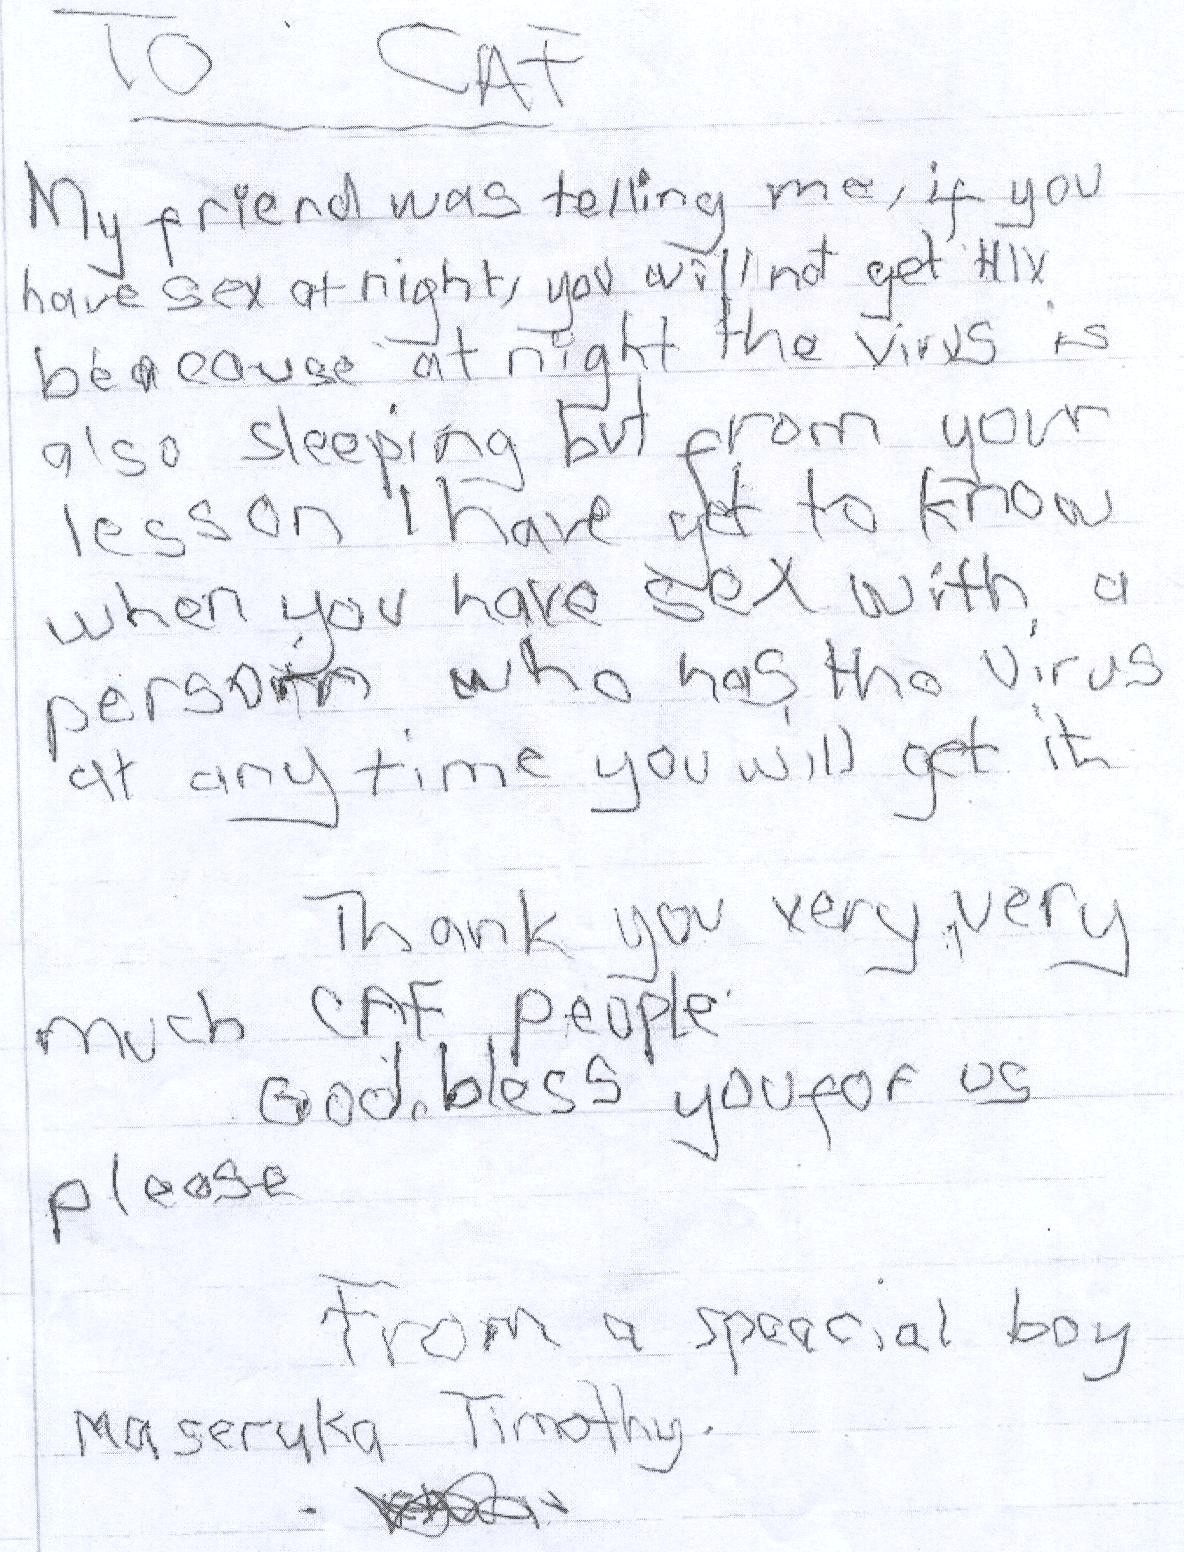 TO CAF
My friend was telling me, if you
have sex at night, you will not get HIV
beacause at night the virus is
also sleeping but from your
lesson I have get to know
when you have sex with a
person who has the virus
at any time you will get it
Thank you very, very
much CAF people.
God bless you for us
please
From a speacial boy
Maseruka Timothy.